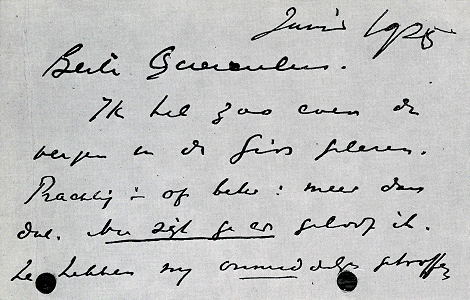 Juni 1925
Beste Querulus.
Ik heb zoo even de
verzen in de Gids gelezen.
Prachtig – of beter: meer dan
dat. Nu zijt ge er geloof ik.
Ze hebben my onmiddelijk getroffen